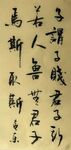 子謂子賤君子哉
若人魯無君子
斯取斯